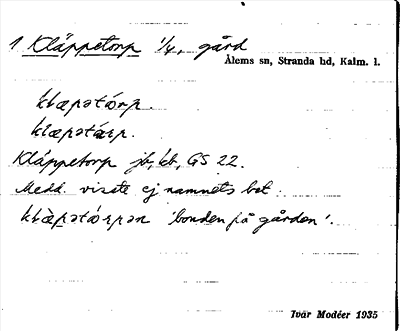 1 Kläppetorp 1/4, gård
Ålems sn, Stranda hd, Kalm. l.
klæpətórp.
klæpətárp.
Kläppetorp jb, kb, GS 22.
Medd. visste ej namnets bet.
klæ̀pətórpən 'bonden på gården'.
Ivar Modéer 1935